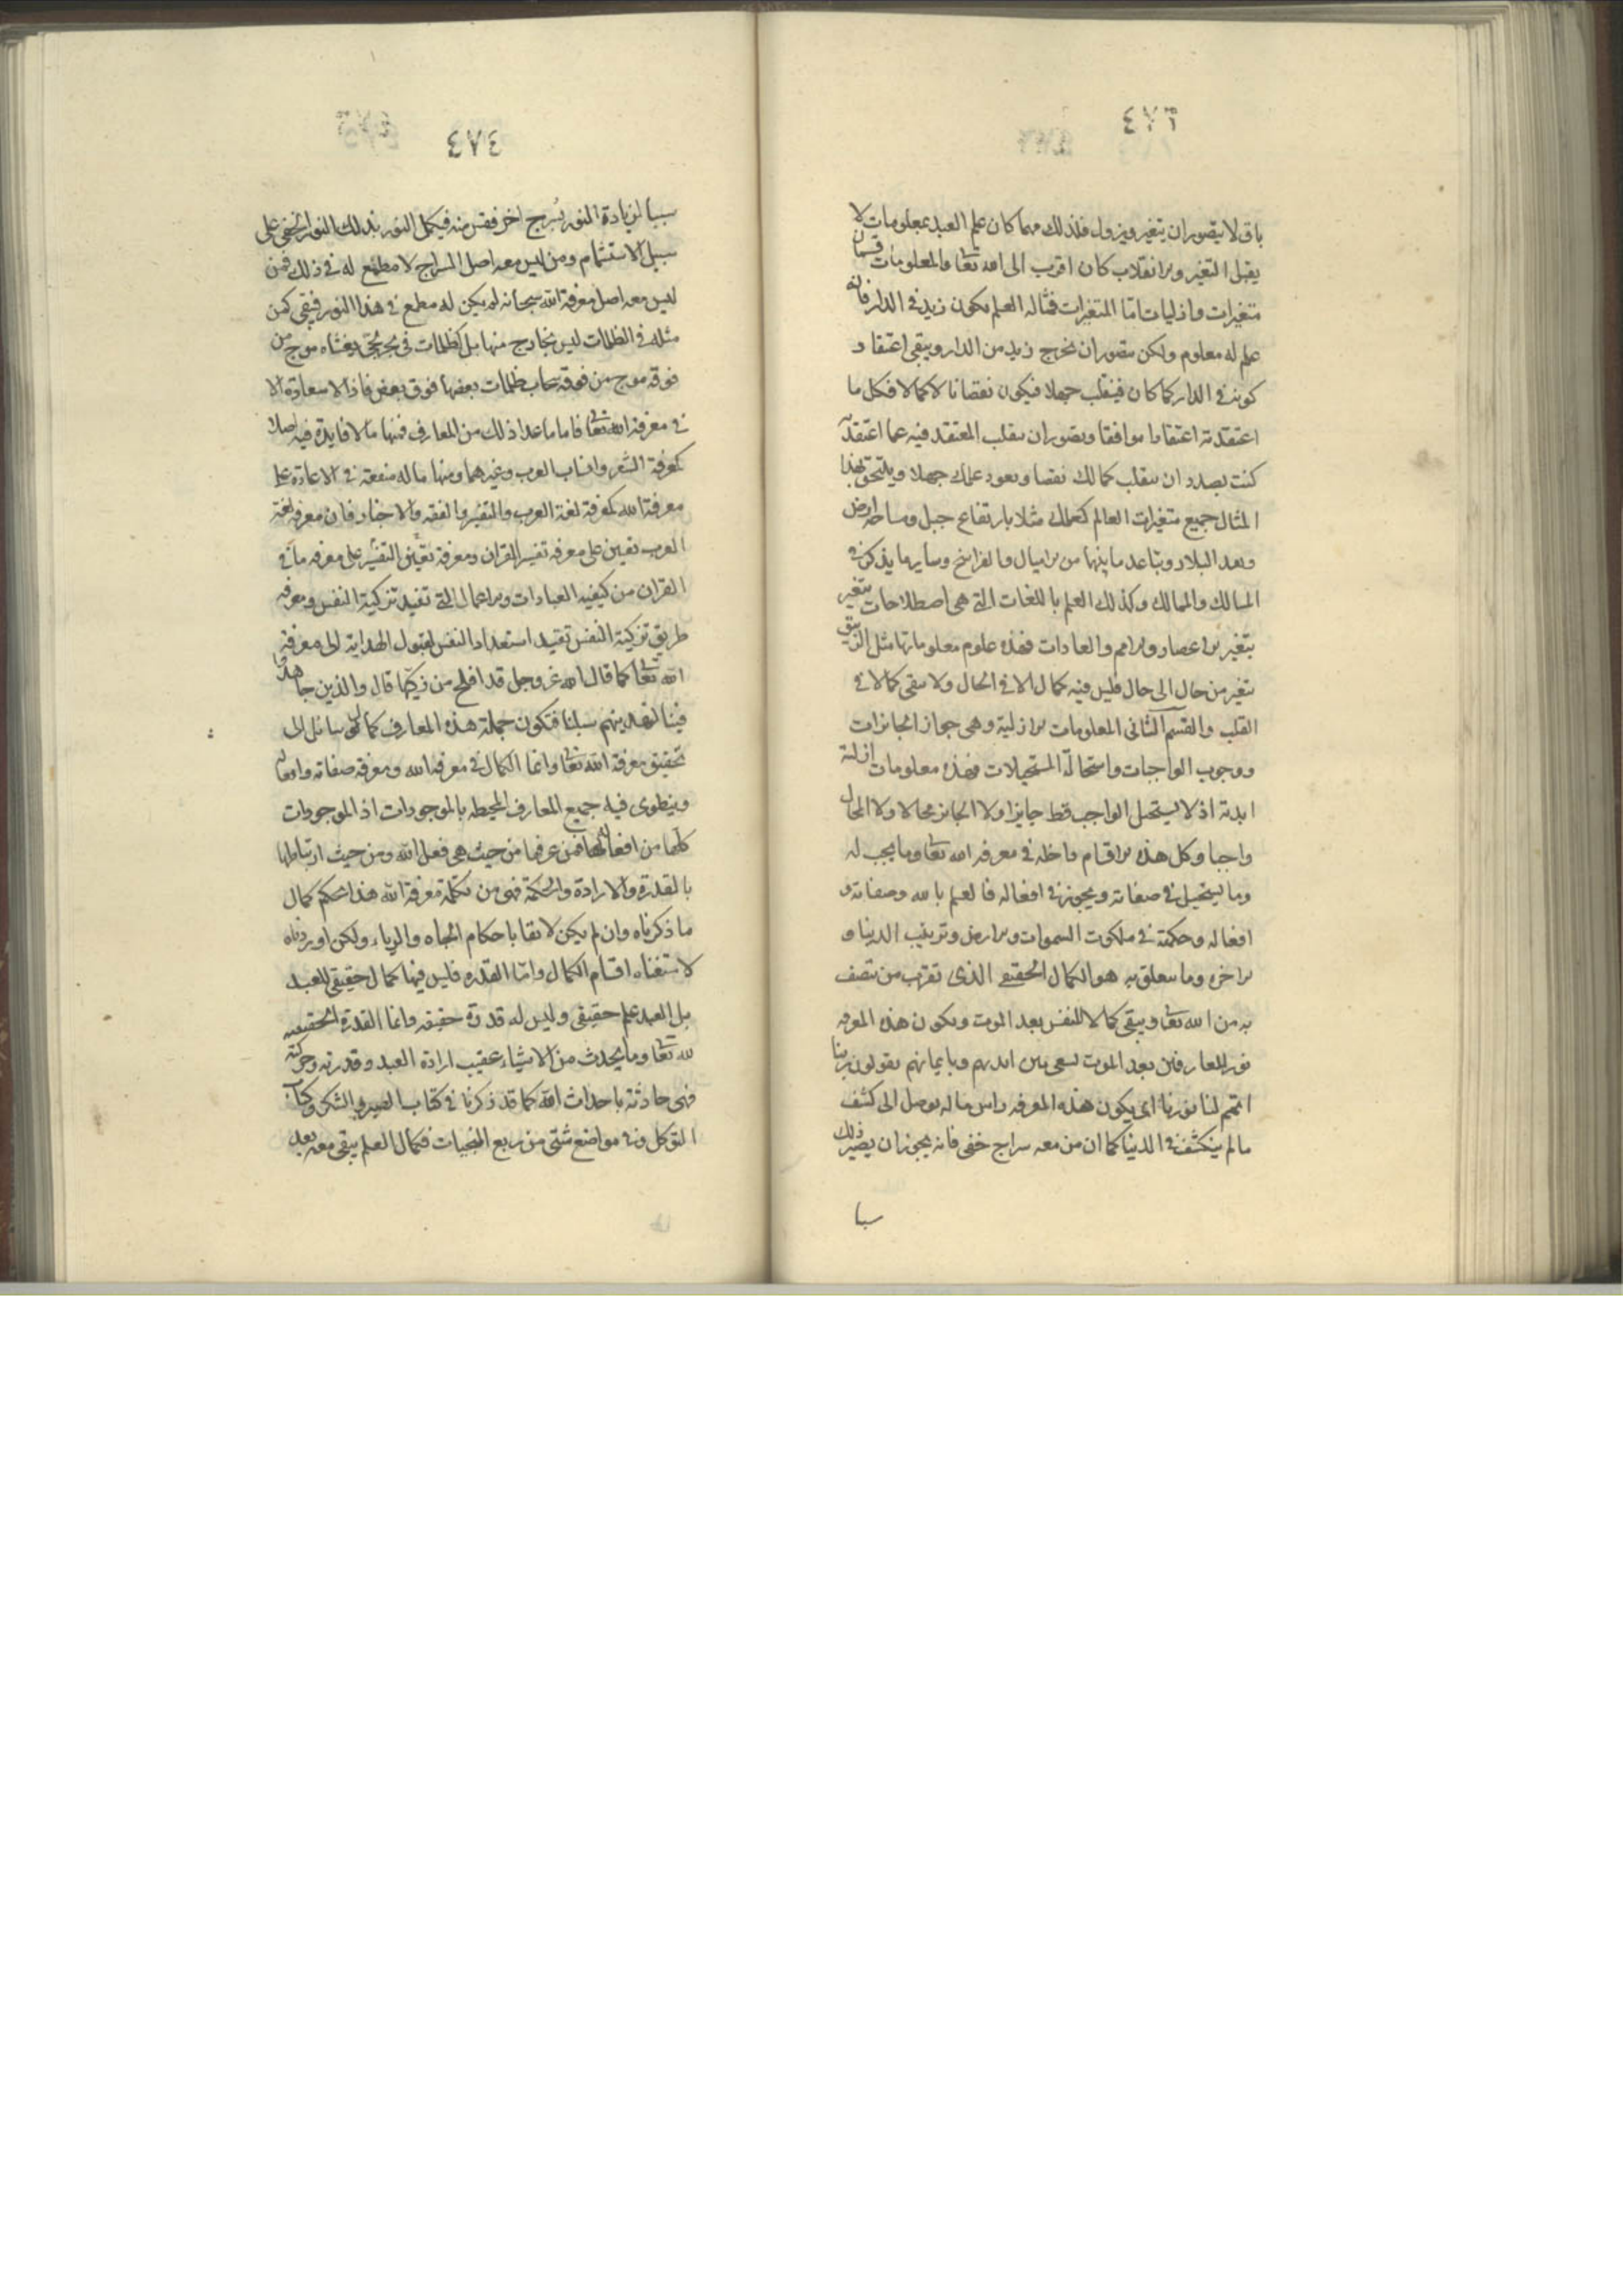 ٤٧٣
باق لا يتصور ان يتغير ويزول فلذلك مهما كان علم العبد بمعلومات لا
يقبل التغير والانقلاب كان اقرب الى الله تعا والمعلومات قسمان
متغيرات وازليات امّا المتغيرات فمثاله العلم بكون زيد في الدار فانه
علم له معلوم ولكن يتصور ان يخرج زيد من الدار ويبقى اعتقاد
كونه في الدار كما كان فينقلب جهلا فيكون نقصانا لا كمالا فكل ما
اعتقدته اعتقادا موافقا ويتصور ان ينقلب المعتقد فيه عما اعتقدته
كنت بصدد ان ينقلب كمالك نقصا ويعود علمك جهلا ويلتحق بهذا
المثال جميع متغيرات العالم كعلمك مثلا بارتفاع جبل ومساحة ارض
وبعد البلاد وتباعد ما بينها من الاميال والفراسخ وساير ما يذكر في
المسالك والممالك وكذلك العلم باللغات التي هي اصطلاحات تتغير
بتغير الاعصار والامم والعادات فهذه علوم معلوماتها مثل الزيبق
يتغير من حال الى حال فليس فيه كمال الا في الحال ولا يبقى كمالا في
القلب والقسم الثاني المعلومات الازلية وهي جواز الجائزات
ووجوب الواجبات واستحالة المستحيلات فهذه معلومات ازلية
ابدية اذ لا يستحيل الواجب قط جايزا ولا الجايز محالا ولا المحال
واجبا وكل هذه الاقسام داخلة في معرفه الله تعا وما يجب له
وما يستحيل في صفاته ويجوز في افعاله فالعلم بالله وصفاته و
افعاله وحكمته في ملكوت السموات والارض وترتيب الدنيا و
الاخره وما يتعلق به هو الكمال الحقيقي الذى تقرب من يتصف
به من الله تعا ويبقى كمالا للنفس بعد الموت ويكون هذه المعرفه
نور للعارفين بعد الموت يسعى بين ايديهم وبايمانهم يقولون ربنا
اتمم لنا نورنا اى يكون هذه المعرفه راس مال يوصل الى كشف
مالم ينكشف في الدنيا كما ان من معه سراج خفى فانه يجوز ان يصير ذلك
سببا
٤٧٤
سببا لزيادة النور بسرج اخر فقتس منه فيكمل النور بذلك النور الخفى على
سبيل الاستتمام ومن ليس معه اصل السراج لا مطمع له في ذلك فمن
ليس معه اصل معرفة الله سبحانه لم يكن له مطمع في هذا النور فيبقى كمن
مثله في الظلمات ليس بخارج منها بل كظلمات فى بحر لجّى يغشاه موج من
فوقه موج من فوقه سحاب ظلمات بعضها فوق بعض فاذا لا سعادة الا
في معرفة الله تعا فاما ما عدا ذلك من المعارف فمنها مالا فايدة فيه اصلا
كمعرفة الشعر وانساب العرب وغيرهما ومنها ما له منفعة في الاعانة على
معرفة الله كمعرفة لغة العرب والتفسير والفقه والاخبار فان معرفه لغة
العرب تعين على معرفه تفسير القران ومعرفة تعين التفسير على معرفه ما في
القران من كيفيه العبادات والاعمال التي تفيد تزكية النفس ومعرفه
طريق تزكية النفس تفيد استعداد النفس لقبول الهداية الى معرفة
الله تعا كما قال الله عز وجل قد افلح من زكّيها قال والذين جاهدوا
فينا لنهدينهم سبلنا فتكون جملة هذه المعارف كالوسائل الى
تحقيق معرفة الله تعا وانما الكمال في معرفه الله ومعرفه صفاته وافعاله
وينطوى فيه جميع المعارف المحيطه بالموجودات اذ الموجودات
كلّها من افعاله فمن عرفها من حيث هي فعل الله ومن حيث ارتباطها
بالقدرة والارادة والحكمة فهى من تكملة معرفة الله هذا حكم كمال
ما ذكرناه وان لم يكن لائقا باحكام الجاه والرياء ولكن اوردناه
لاستيفاء اقسام الكمال وامّا القدره فليس فيها كمال حقيقى للعبد
بل للعبد علم حقيقى وليس له قدرة حقيقه وانما القدرة الحقيقيه
لله تعا وما يحدث من الاشياء عقيب ارادة العبد وقدرته وحركته
فهى حادثة باحداث الله كما قد ذكرنا في كتاب الصبر والشكر وكتاب
التوكل وفى مواضع شتى من ربع المنجيات فكمال العلم يبقى معه بعد